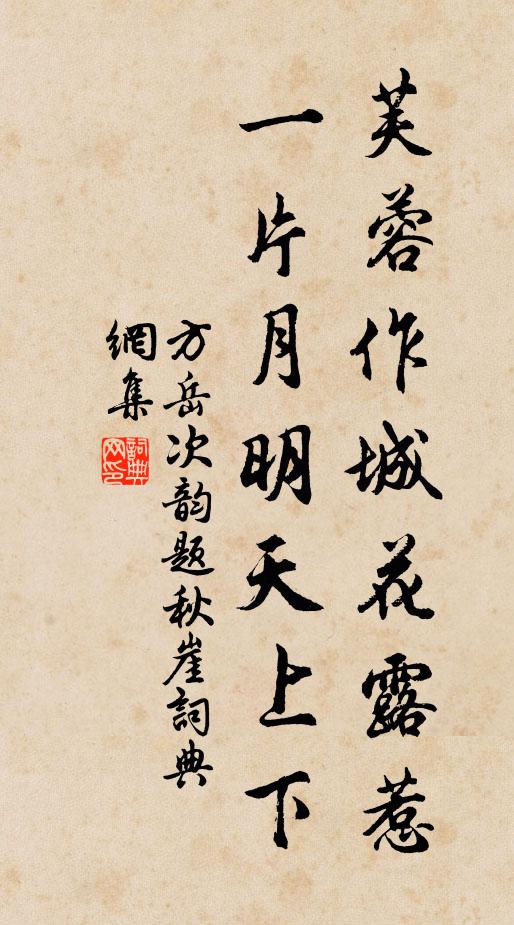 芙蓉作城花露惹
一片月明天上下
方岳次韵题秋崖詞典
網集
詞典網印